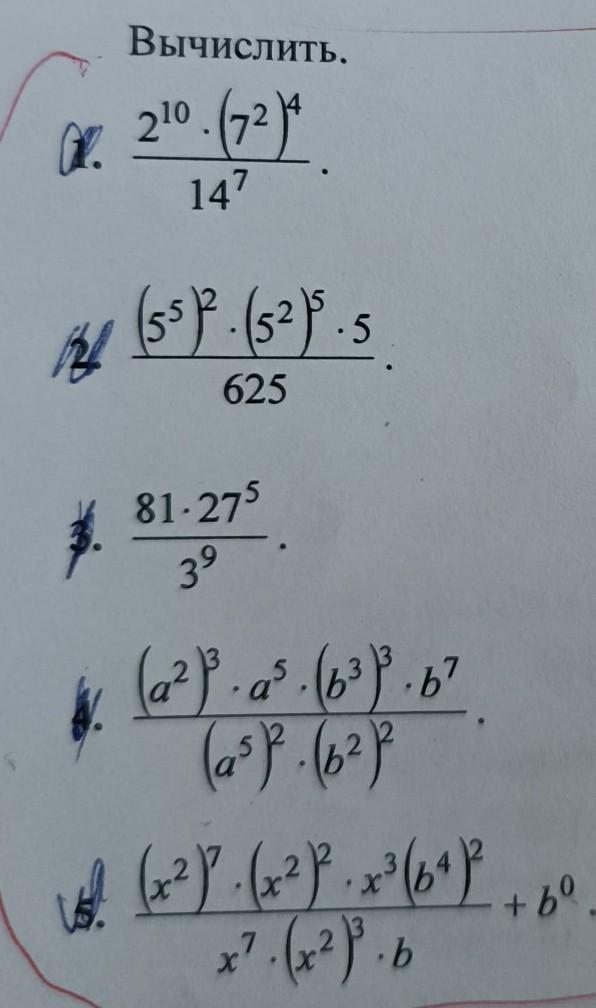 Вычислить.
1. \frac{2^{10} \cdot (7^2)^4}{14^7}.
2. \frac{(5^5)^2 \cdot (5^2)^5 \cdot 5}{625}.
3. \frac{81 \cdot 27^5}{3^9}.
4. \frac{(a^2)^3 \cdot a^5 \cdot (b^3)^3 \cdot b^7}{(a^5)^2 \cdot (b^2)^2}.
5. \frac{(x^2)^7 \cdot (x^2)^2 \cdot x^3 (b^4)^2}{x^7 \cdot (x^2)^3 \cdot b} + b^0.